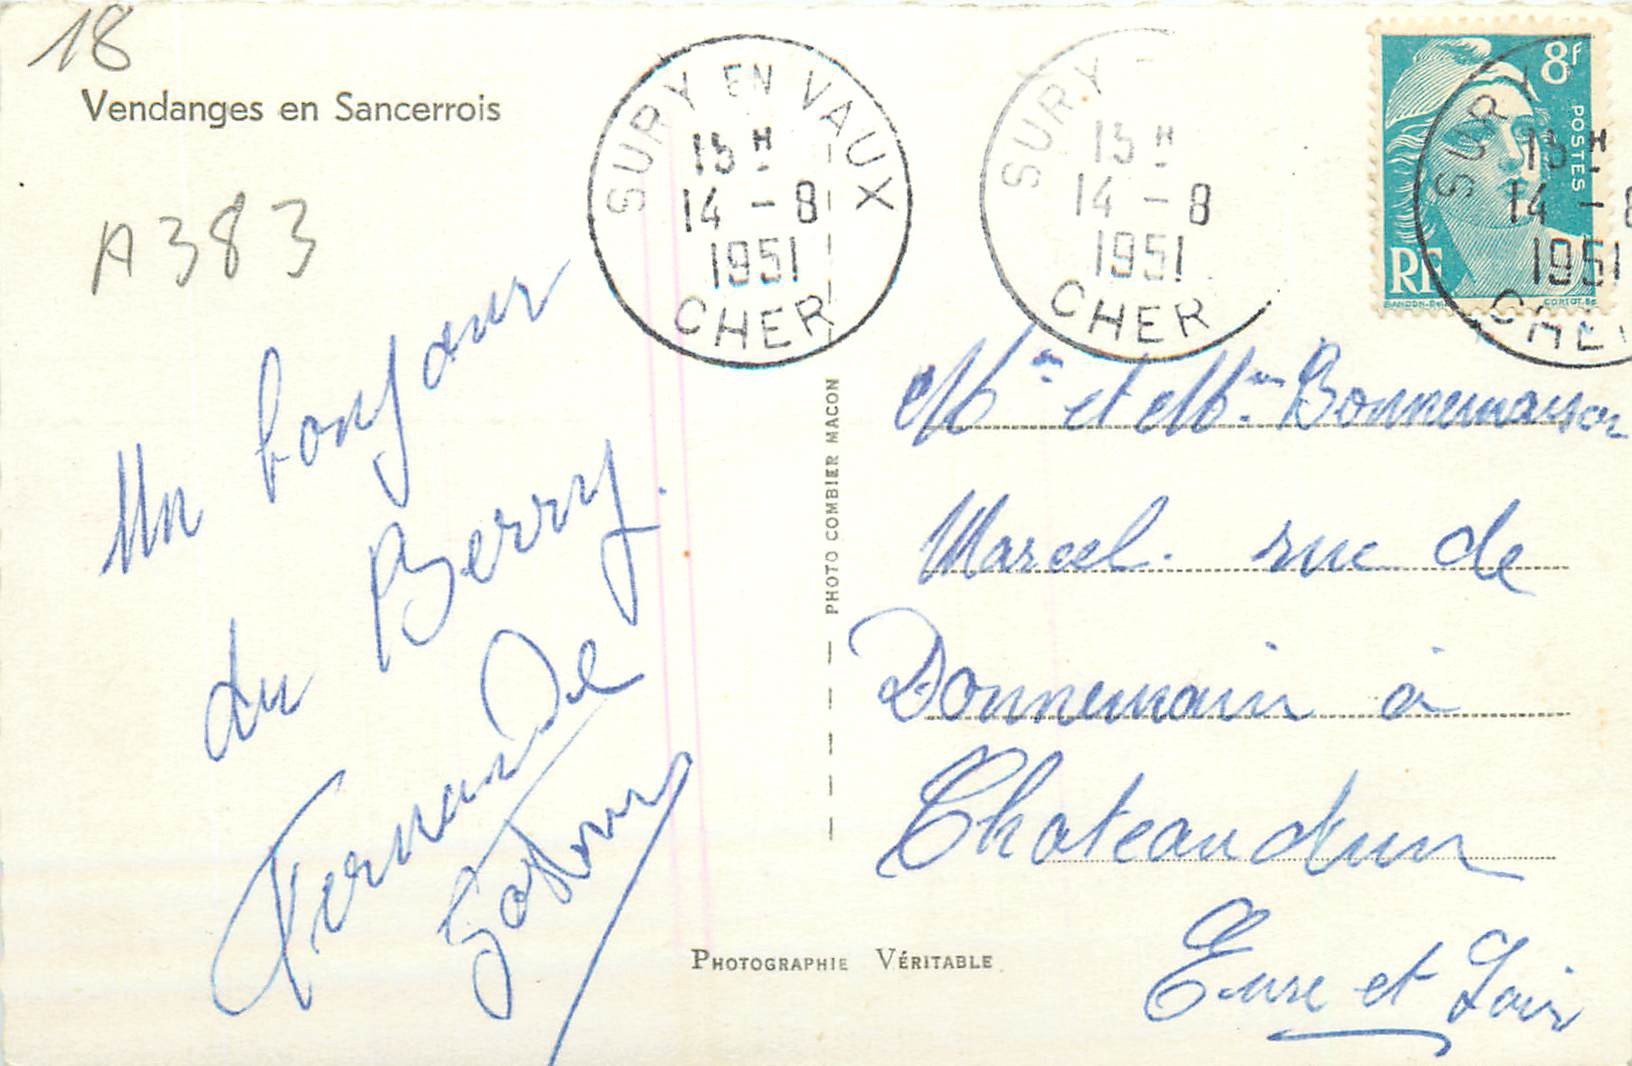 18
Vendanges en Sancerrois
A383
SURY EN VAUX
13H
14-8
1951
CHER
SURY
13H
14-8
1951
CHER
8F
POSTES
RF
SURY
13H
14-8
1951
CHER
Un bonjour
du Berry.
Fernande
PHOTO COMBIER MACON
PHOTOGRAPHIE VÉRITABLE
Mr et Mme Bonnemaison
Marcel. rue de
Donnemain à
Chateaudun
Eure et Loir